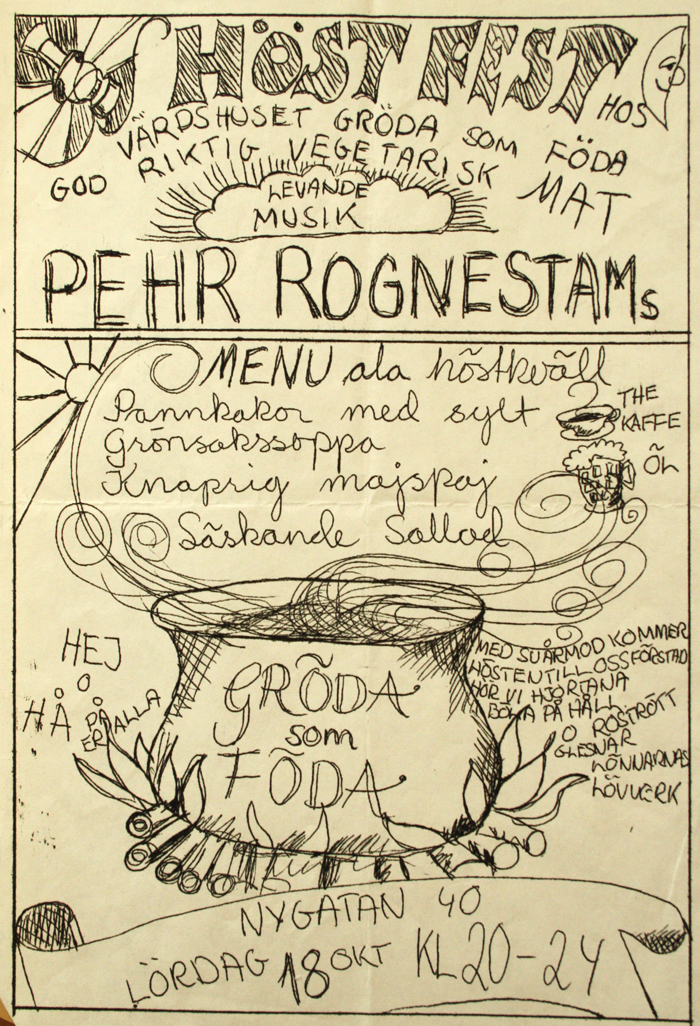 HÖST FEST
HOS
VÄRDSHUSET GRÖDA SOM FÖDA
GOD RIKTIG VEGETARISK MAT
LEVANDE
MUSIK
PEHR ROGNESTAMS
MENU ala höstkväll
Pannkakor med sylt
Grönsakssoppa
Knaprig majspaj
Såskande Sallad
THE
KAFFE
ÖL
HEJ
O
HÅ PÅ
ER ALLA
GRÖDA
som
FÖDA
MED SVÅRMOD KOMMER
HÖSTEN TILL OSS FÖRSTÅD
HÖR VI HJORTANA
BÖLA PÅ HÅLL
O ROSTRÖTT
GLESNAR
LÖNNARNAS
LÖVVERK
NYGATAN 40
LÖRDAG 18 OKT KL 20-24